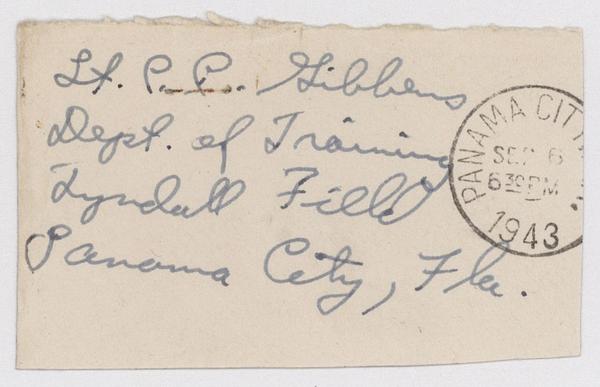 Lt. P. P. Gibbens
Dept. of Training
Tyndall Field
Panama City, Fla.
PANAMA CITY
SEP 6
6 30 PM
1943